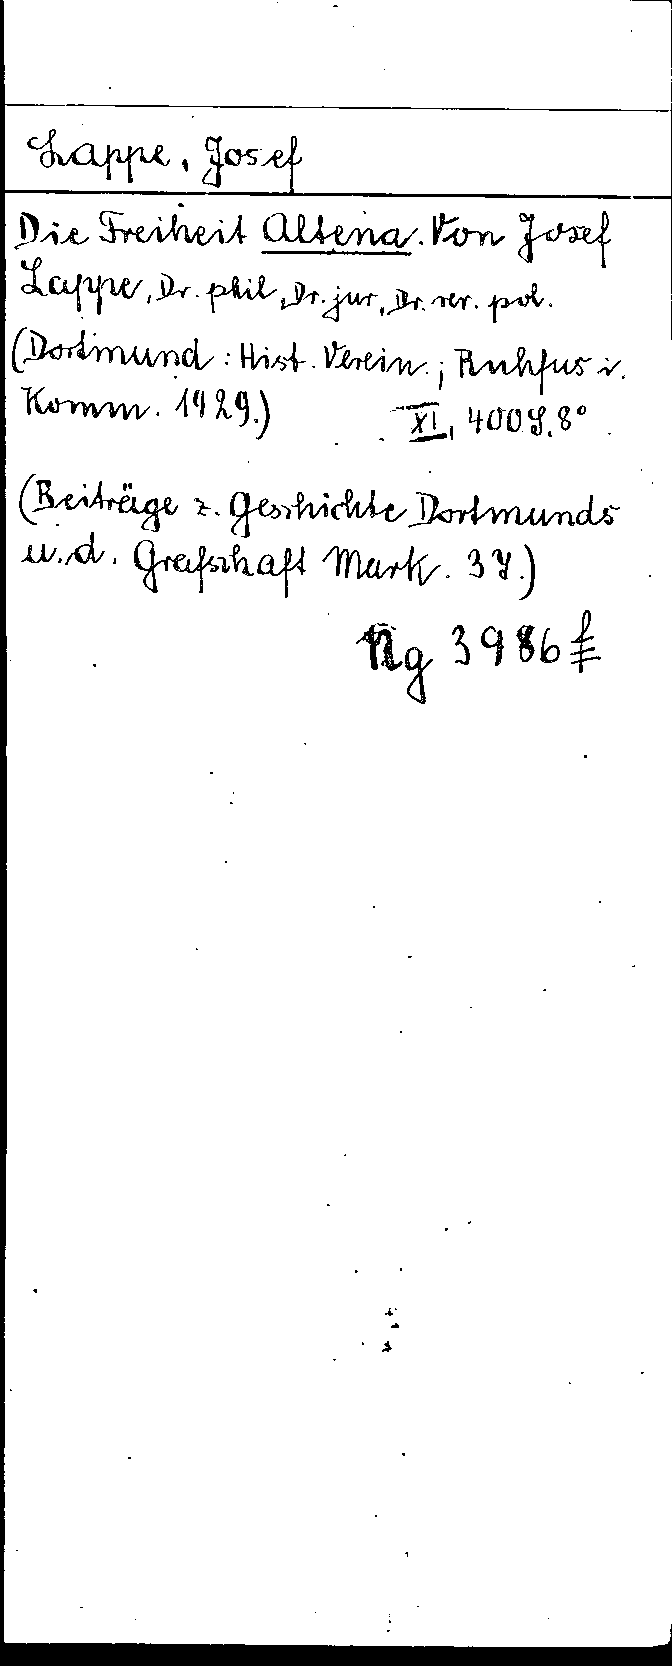 Lappe, Josef
Die Freiheit Altena. Von Josef
Lappe, Dr. phil, Dr. jur, Dr. rer. pol.
(Dortmund: Hist. Verein.; Ruhfus i.
Komm. 1929.) XI, 400 S. 8°
(Beiträge z. Geschichte Dortmunds
u. d. Grafschaft Mark. 37.)
Ng 3986